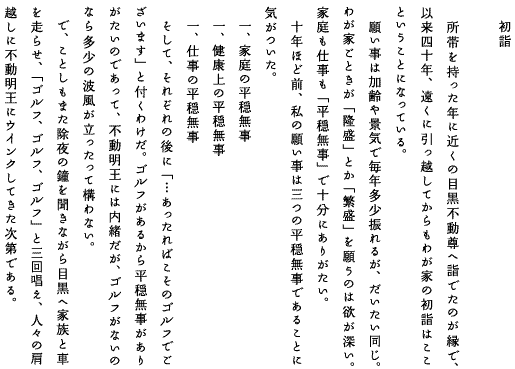 初詣
所帯を持った年に近くの目黒不動尊へ詣でたのが縁で、
以来四十年、遠くに引っ越してからもわが家の初詣はここ
ということになっている。
願い事は加齢や景気で毎年多少振れるが、だいたい同じ。
わが家ごときが「隆盛」とか「繁盛」を願うのは欲が深い。
家庭も仕事も「平穏無事」で十分にありがたい。
十年ほど前、私の願い事は三つの平穏無事であることに
気がついた。
一、家庭の平穏無事
一、健康上の平穏無事
一、仕事の平穏無事
そして、それぞれの後に「…あったればこそのゴルフでご
ざいます」と付くわけだ。ゴルフがあるから平穏無事があり
がたいのであって、不動明王には内緒だが、ゴルフがないの
なら多少の波風が立ったって構わない。
で、ことしもまた除夜の鐘を聞きながら目黒へ家族と車
を走らせ、「ゴルフ、ゴルフ、ゴルフ」と三回唱え、人々の肩
越しに不動明王にウインクしてきた次第である。